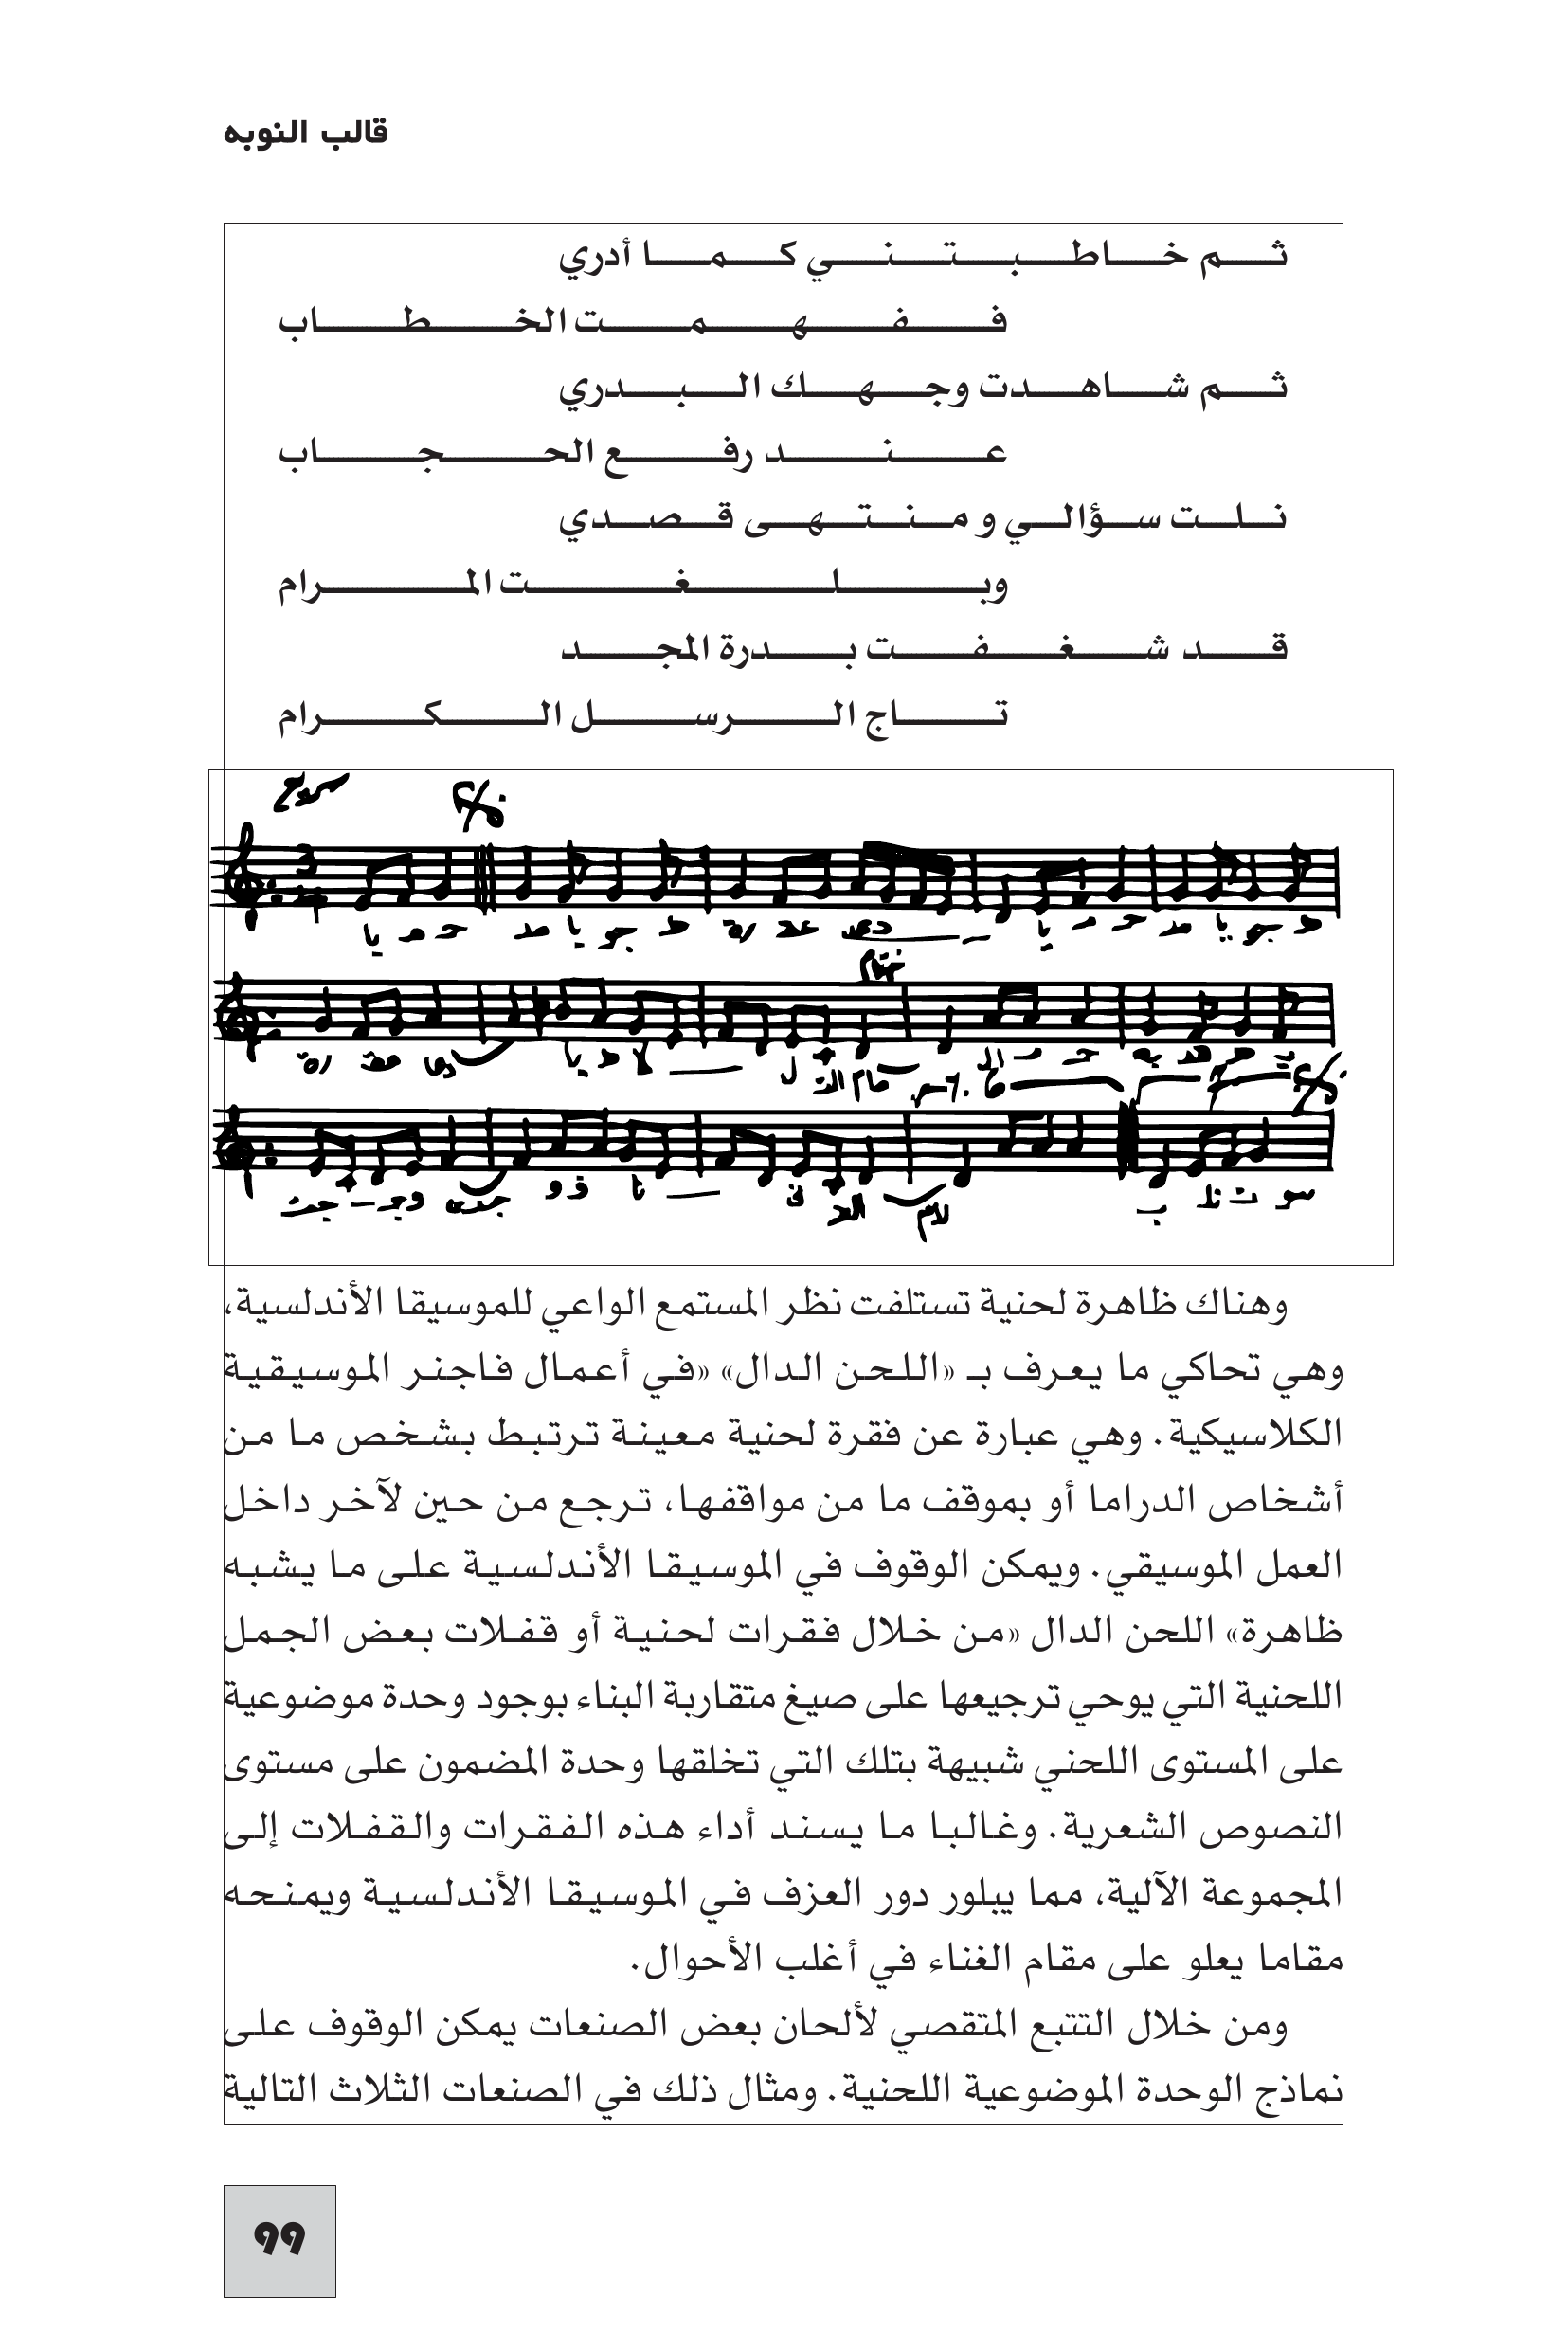 قالب النوبه
ثم خاطبتني كما أدري
ففهمت الخطاب
ثم شاهدت وجهك البدري
عند رفع الحجاب
نلت سؤالي و منتهى قصدي
وبلغت المرام
قد شغفت بدرة المجد
تاج الرسل الكرام
وهناك ظاهرة لحنية تستلفت نظر المستمع الواعي للموسيقا الأندلسية،
وهي تحاكي ما يعرف بـ «اللحن الدال» «في أعمال فاجنر الموسيقية
الكلاسيكية. وهي عبارة عن فقرة لحنية معينة ترتبط بشخص ما من
أشخاص الدراما أو بموقف ما من مواقفها، ترجع من حين لآخر داخل
العمل الموسيقي. ويمكن الوقوف في الموسيقا الأندلسية على ما يشبه
ظاهرة» اللحن الدال «من خلال فقرات لحنية أو قفلات بعض الجمل
اللحنية التي يوحي ترجيعها على صيغ متقاربة البناء بوجود وحدة موضوعية
على المستوى اللحني شبيهة بتلك التي تخلقها وحدة المضمون على مستوى
النصوص الشعرية. وغالبا ما يسند أداء هذه الفقرات والقفلات إلى
المجموعة الآلية، مما يبلور دور العزف في الموسيقا الأندلسية ويمنحه
مقاما يعلو على مقام الغناء في أغلب الأحوال.
ومن خلال التتبع المتقصي لألحان بعض الصنعات يمكن الوقوف على
نماذج الوحدة الموضوعية اللحنية. ومثال ذلك في الصنعات الثلاث التالية
99